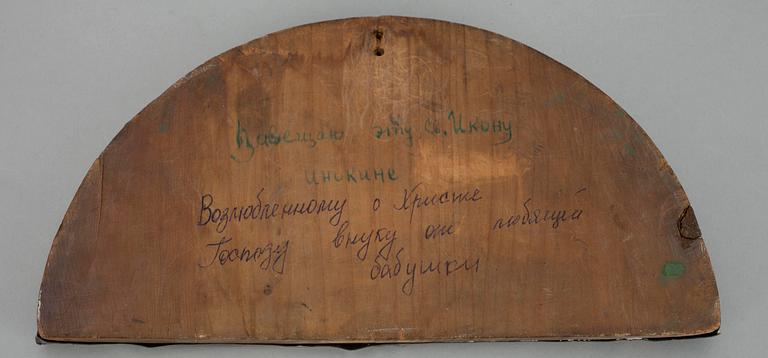 Завещаю эту св. Икону
инокине
Возлюбленному о Христе
Господу внуку от любящей
бабушки